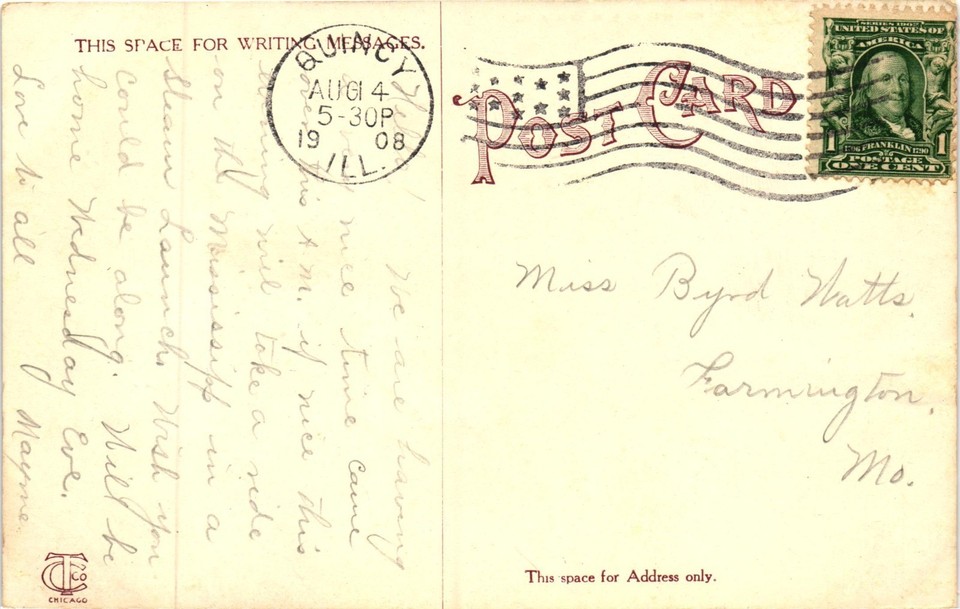 THIS SPACE FOR WRITING MESSAGES.
Hello! We are having
nice time came
over this A.M. if nice this
evening will take a ride
on the Mississippi in a
Steam Launch. Wish you
could be along. Will be
home Wednesday Eve.
Love to all Mayme
QUINCY
AUG 14
5-30P
19 08
ILL.
POST CARD
SERIES 1902
UNITED STATES OF
AMERICA
1 1706 FRANKLIN 1790 1
POSTAGE
ONE CENT
Miss Byrd Watts.
Farmington,
Mo.
This space for Address only.
TC CO
CHICAGO